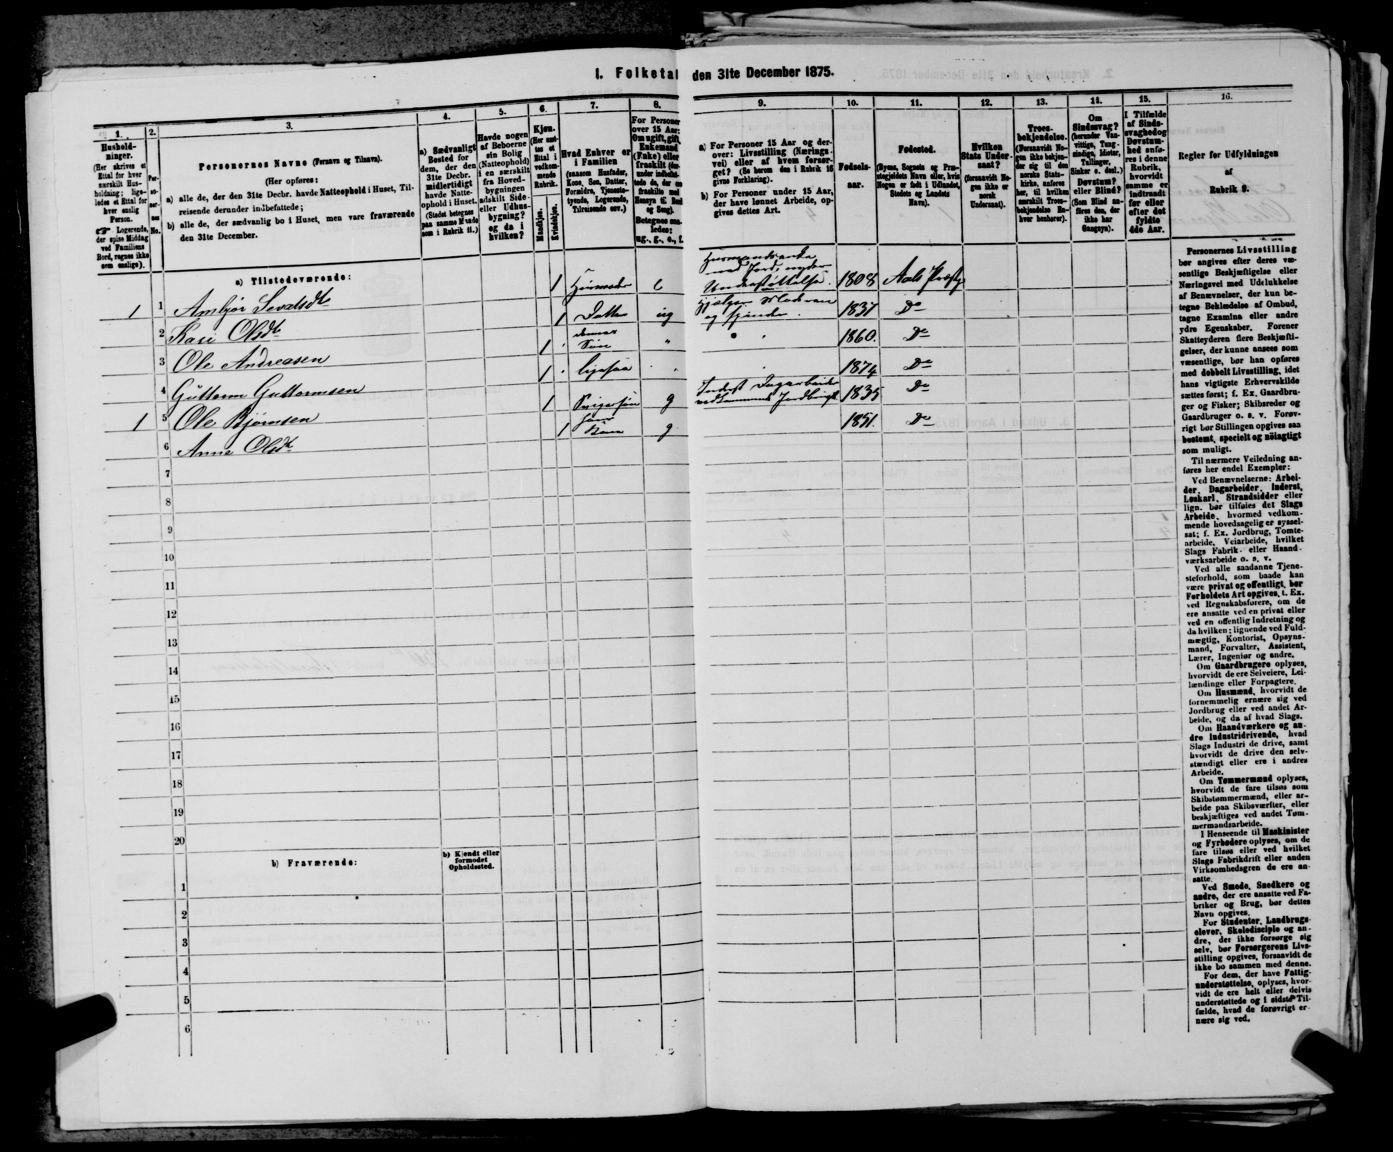 I. Folketal den 31te December 1875.
1.
Husholdninger.
(Her skrives et Ettal for hver særskilt Husholdning; ligeledes et Ettal for hver enslig Person.
☞ Logerende, der spise Middag ved Familiens Bord, regnes ikke som enslige).
2.
Personernes No.
3.
Personernes Navne (Fornavn og Tilnavn).
(Her opføres:
a) alle de, der den 31te Decbr. havde Natteophold i Huset, Tilreisende derunder indbefattede;
b) alle de, der sædvanlig bo i Huset, men vare fraværende den 31te December.
4.
a) Sædvanligt Bosted for dem, der den 31te Decbr. midlertidigt havde Natteophold i Huset.
(Stedet betegnes paa samme Maade som i Rubrik 11.)
5.
Havde nogen af Beboerne sin Bolig (Natteophold) i en særskilt fra Hovedbygningen adskilt Side- eller Udhusbygning? og da i hvilken?
6.
Kjøn.
(Her sættes et Ettal i vedkommende Rubrik.
Mandkjøn.
Kvindekjøn.
7.
Hvad Enhver er i Familien
(saasom Husfader, Kone, Søn, Datter, Forældre, Tjenestetyende, Logerende, Tilreisende osv.)
8.
9.
a) For Personer 15 Aar og derover: Livsstilling (Næringsvei) eller af hvem forsørget? (Se herom den i Rubrik 16 givne Forklaring).
b) For Personer under 15 Aar, der have lønnet Arbeide, opgives dettes Art.
10.
Fødselsaar.
11.
Fødested.
(Byens, Sognets eller Præstegjeldets Navn eller, hvis Nogen er født i Udlandet, Stedets og Landets Navn).
12.
Hvilken Stats Undersaat?
(forsaavidt Nogen ikke er norsk Undersaat).
13.
Troesbekjendelse.
(Forsaavidt Nogen ikke bekjender sig til den norske Statskirke, anføres her, til hvilken særskilt Troesbekjendelse Enhver henhører).
14.
Om Sindssvag?
(herunder Vanvittige, Tungsindige, Idioter, Tullinger, Sinker o. desl.)
Døvstum? eller Blind?
(Som Blind anføres den, der ikke har Gangsyn).
15.
I Tilfælde af Sindssvaghed og Døvstumhed anføres i denne Rubrik, hvorvidt samme er indtraadt før eller efter det fyldte 4de Aar.
16.
Regler for Udfyldningen
af
Rubrik 9.
a) Tilstedeværende:
1 1 Ambjør Sevatsdt 1 Husmoder e Husmandsenke med Jord, nyder Understøttelse. 1808 Aals Præstg
2 Kari Olsdt 1 Datter ug Hjelper Moderen 1837 Do
3 Ole Andreasen 1 dennes Søn " 1860. Do
4 Guttorm Guttormsen 1 ligesaa " 1874 Do
1 5 Ole Bjørnsen 1 g Inderst Dagarbeider 1835 Do
6 Anne Olsdt 1 g 1851. Do
7
8
9
10
11
12
13
14
15
16
17
18
19
20
b) Fraværende:
b) Kjendt eller formodet Opholdssted.
1
2
3
4
5
6
Personernes Livsstilling
bør angives efter deres væ-
sentlige Beskjæftigelse eller
Næringsvei med Udlukkelse
af Benævnelser, der kun be-
tegne Beklædelse af Ombud,
tagne Examina eller andre
ydre Egenskaber. Forener
Skatteyderen flere Beskjæfti-
gelser, der kunne ansees som
væsentlige, bør han opføres
med dobbelt Livsstilling, idet
hans vigtigste Erhvervskilde
sættes først; f. Ex. Gaardbru-
ger og Fisker; Skibsreder og
Gaardbruger o. s. v. Forøv-
rigt bør Stillingen opgives saa
bestemt, specielt og nöiagtigt
som muligt.
Til nærmere Veiledning an-
føres her endel Exempler:
Ved Benævnelserne: Arbei-
der, Dagarbeider, Inderst,
Løskarl, Strandsidder eller
lign. bør tilføies det Slags
Arbeide, hvormed vedkom-
mende hovedsagelig er syssel-
sat; f. Ex. Jordbrug, Tomte-
arbeide, Veiarbeide, hvilket
Slags Fabrik- eller Haand-
værksarbeide o. s. v.
Ved alle saadanne Tjene-
steforhold, som baade kan
være privat og offentligt, bør
Forholdets Art opgives, t. Ex.
ved Regnskabsførere, om de
ere ansatte ved en privat eller
ved en offentlig Indretning og
da hvilken; lignende ved Fuld-
mægtig, Kontorist, Opsyns-
mand, Forvalter, Assistent,
Lærer, Ingeniør og andre.
Om Gaardbrugere oplyses,
hvorvidt de ere Selveiere, Lei-
lændinge eller Forpagtere.
Om Husmænd, hvorvidt de
fornemmelig ernære sig ved
Jordbrug eller ved andet Ar-
beide, og da af hvad Slags.
Om Haandværkere og an-
dre Industridrivende, hvad
Slags Industri de drive, samt
hvorvidt de drive den selv-
stændigt eller ere i andres
Arbeide.
Om Tømmermænd oplyses,
hvorvidt de fare tilsøs som
Skibstømmermænd, eller ar-
beide paa Skibsværfter, eller
beskjæftiges ved andet Tøm-
mermandsarbeide.
I Henseende til Maskinister
og Fyrbødere oplyses, om de
fare tilsøs eller ved hvilket
Slags Fabrikdrift eller anden
Virksomhedsgren de ere an-
satte.
Ved Smede, Snedkere og
andre, der ere ansatte ved Fa-
briker og Brug, bør dettes
Navn opgives.
For Studenter, Landbrugs-
elever, Skoledisciple og an-
dre, der ikke forsørge sig
selv, bør Forsørgerens Livs-
stilling opgives, forsaavidt de
ikke bo sammen med denne.
For dem, der have Fattig-
understøttelse, oplyses, hvor-
vidt de ere helt eller delvis
understøttede og i sidste Til-
fælde, hvad de forøvrigt er-
nære sig ved.